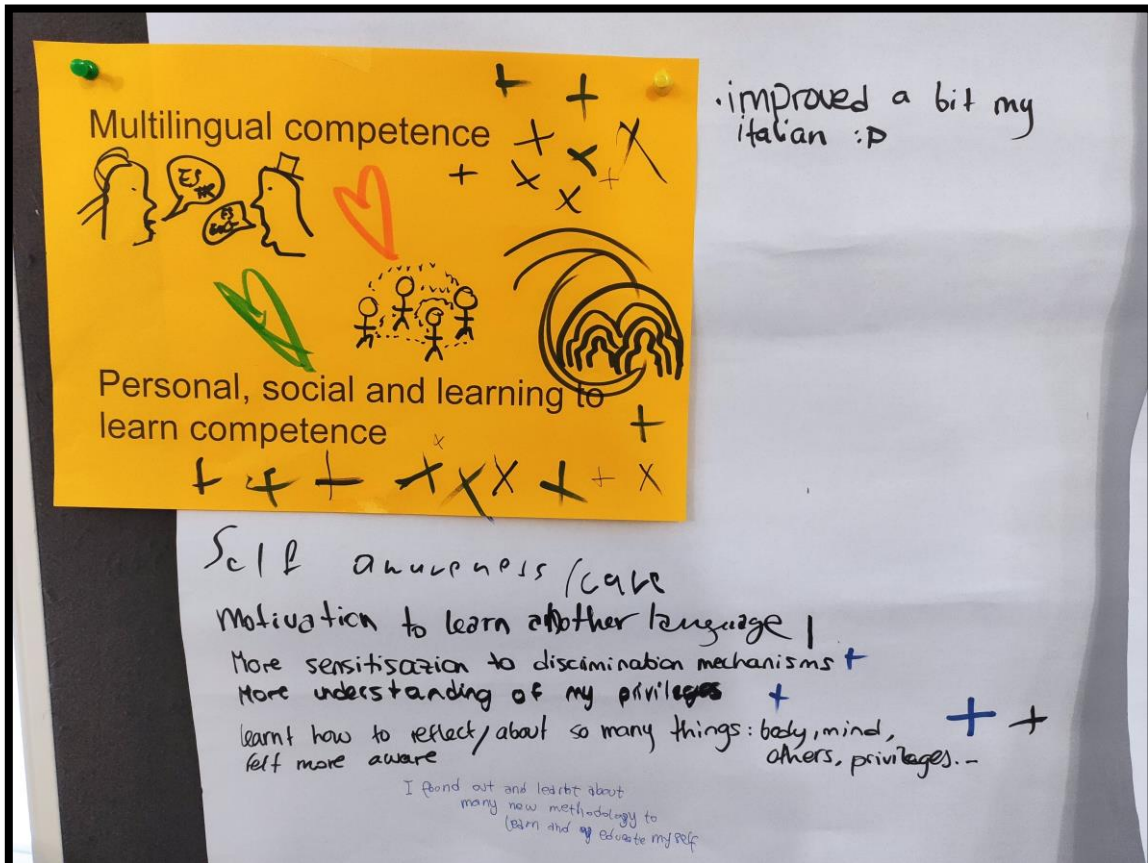 Multilingual competence
ES
ES
Personal, social and learning to
learn competence
·improved a bit my
italian :D
Self awareness/care
Motivation to learn another language |
More sensitisazion to discrimination mechanisms +
More understanding of my privileges +
learnt how to reflect/about so many things: body, mind,
felt more aware others, privilages...
I found out and learnt about
many new methodology to
learn and educate myself